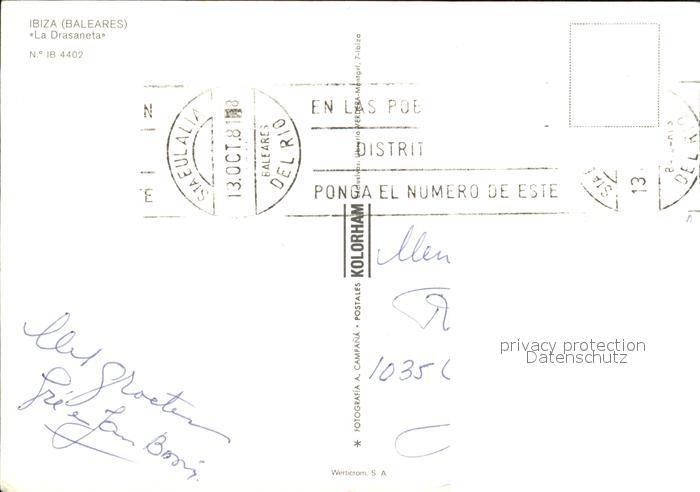 IBIZA (BALEARES)
«La Drasaneta»
N.º IB 4402
N
E
STA EULALIA
13.OCT.81
BALEARES
DEL RIO
EN LAS POB
DISTRIT
PONGA EL NUMERO DE ESTE
STA
13
DEL RIO
FOTOGRAFIA A. CAMPAÑÁ • POSTALES KOLORHAM
7-Ibiza
Men
1035
Met Groeten
Jan
privacy protection
Datenschutz
Werticrom, S. A.